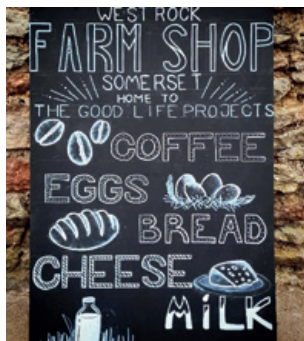 WEST ROCK
FARM SHOP
SOMERSET
HOME TO
THE GOOD LIFE PROJECTS
COFFEE
EGGS
BREAD
CHEESE
MiLK